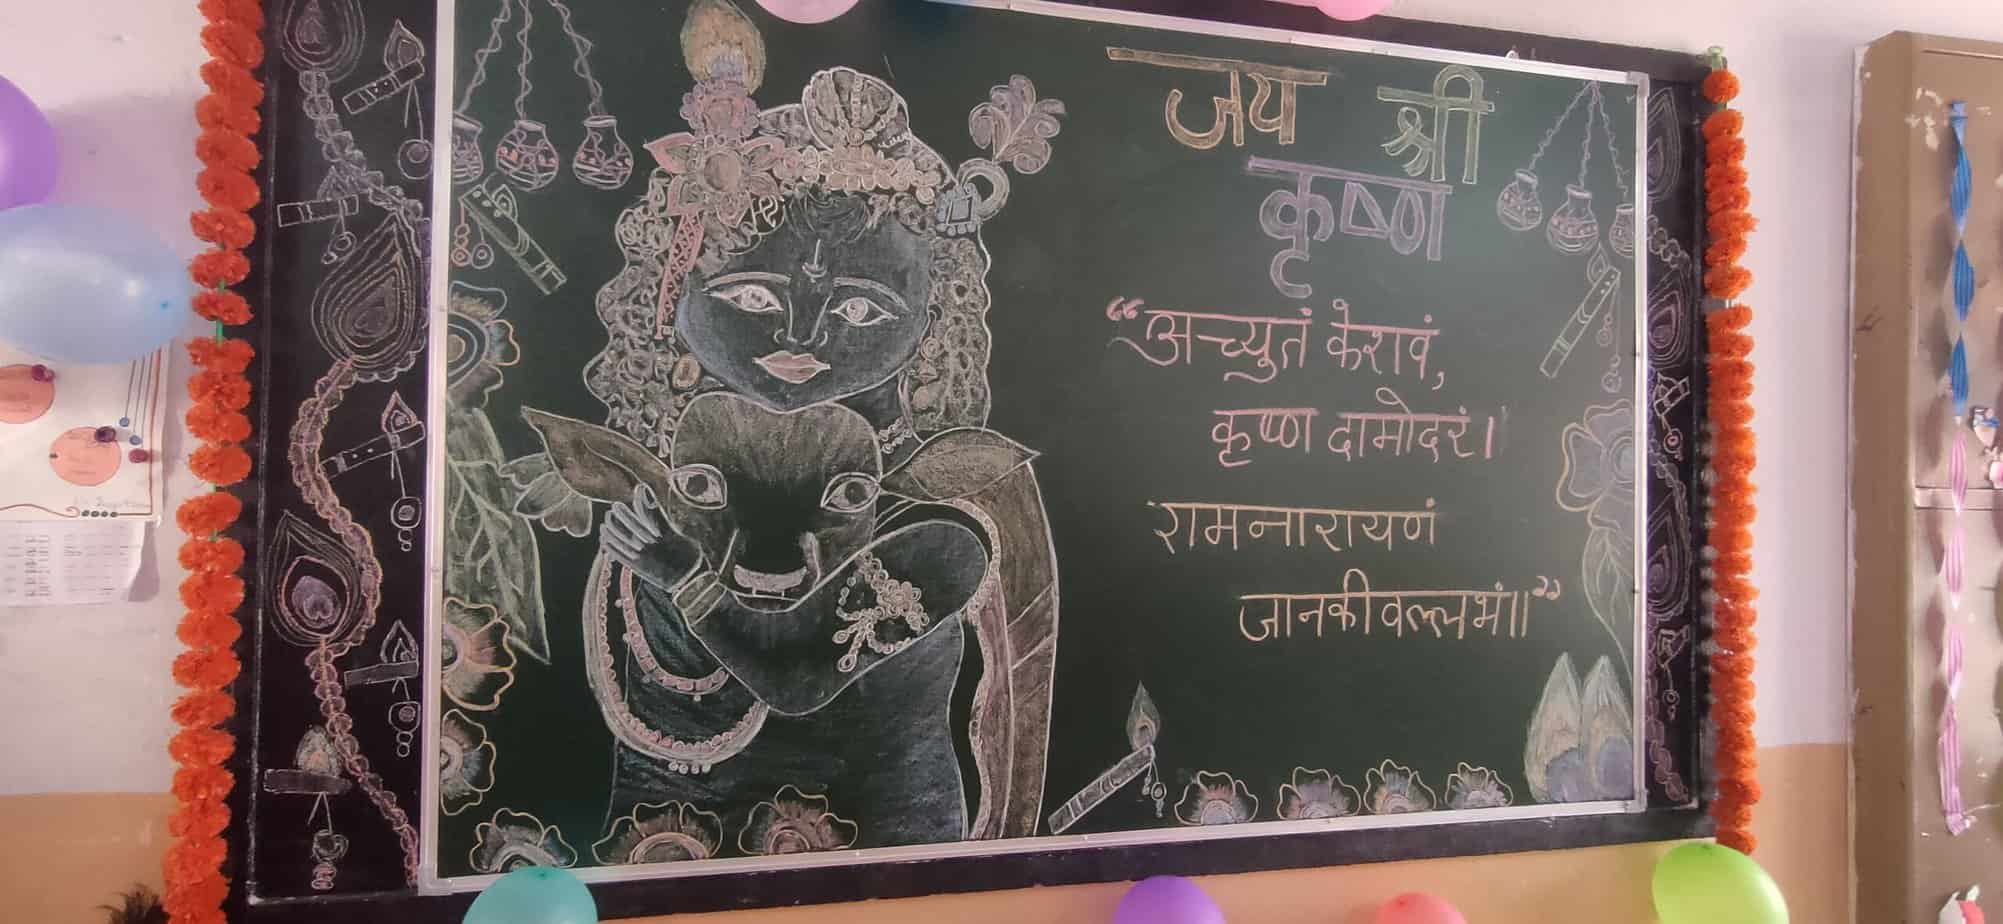 जय श्री
कृष्ण
“अच्युतं केशवं,
कृष्ण दामोदरं।
रामनारायणं
जानकीवल्लभं॥”